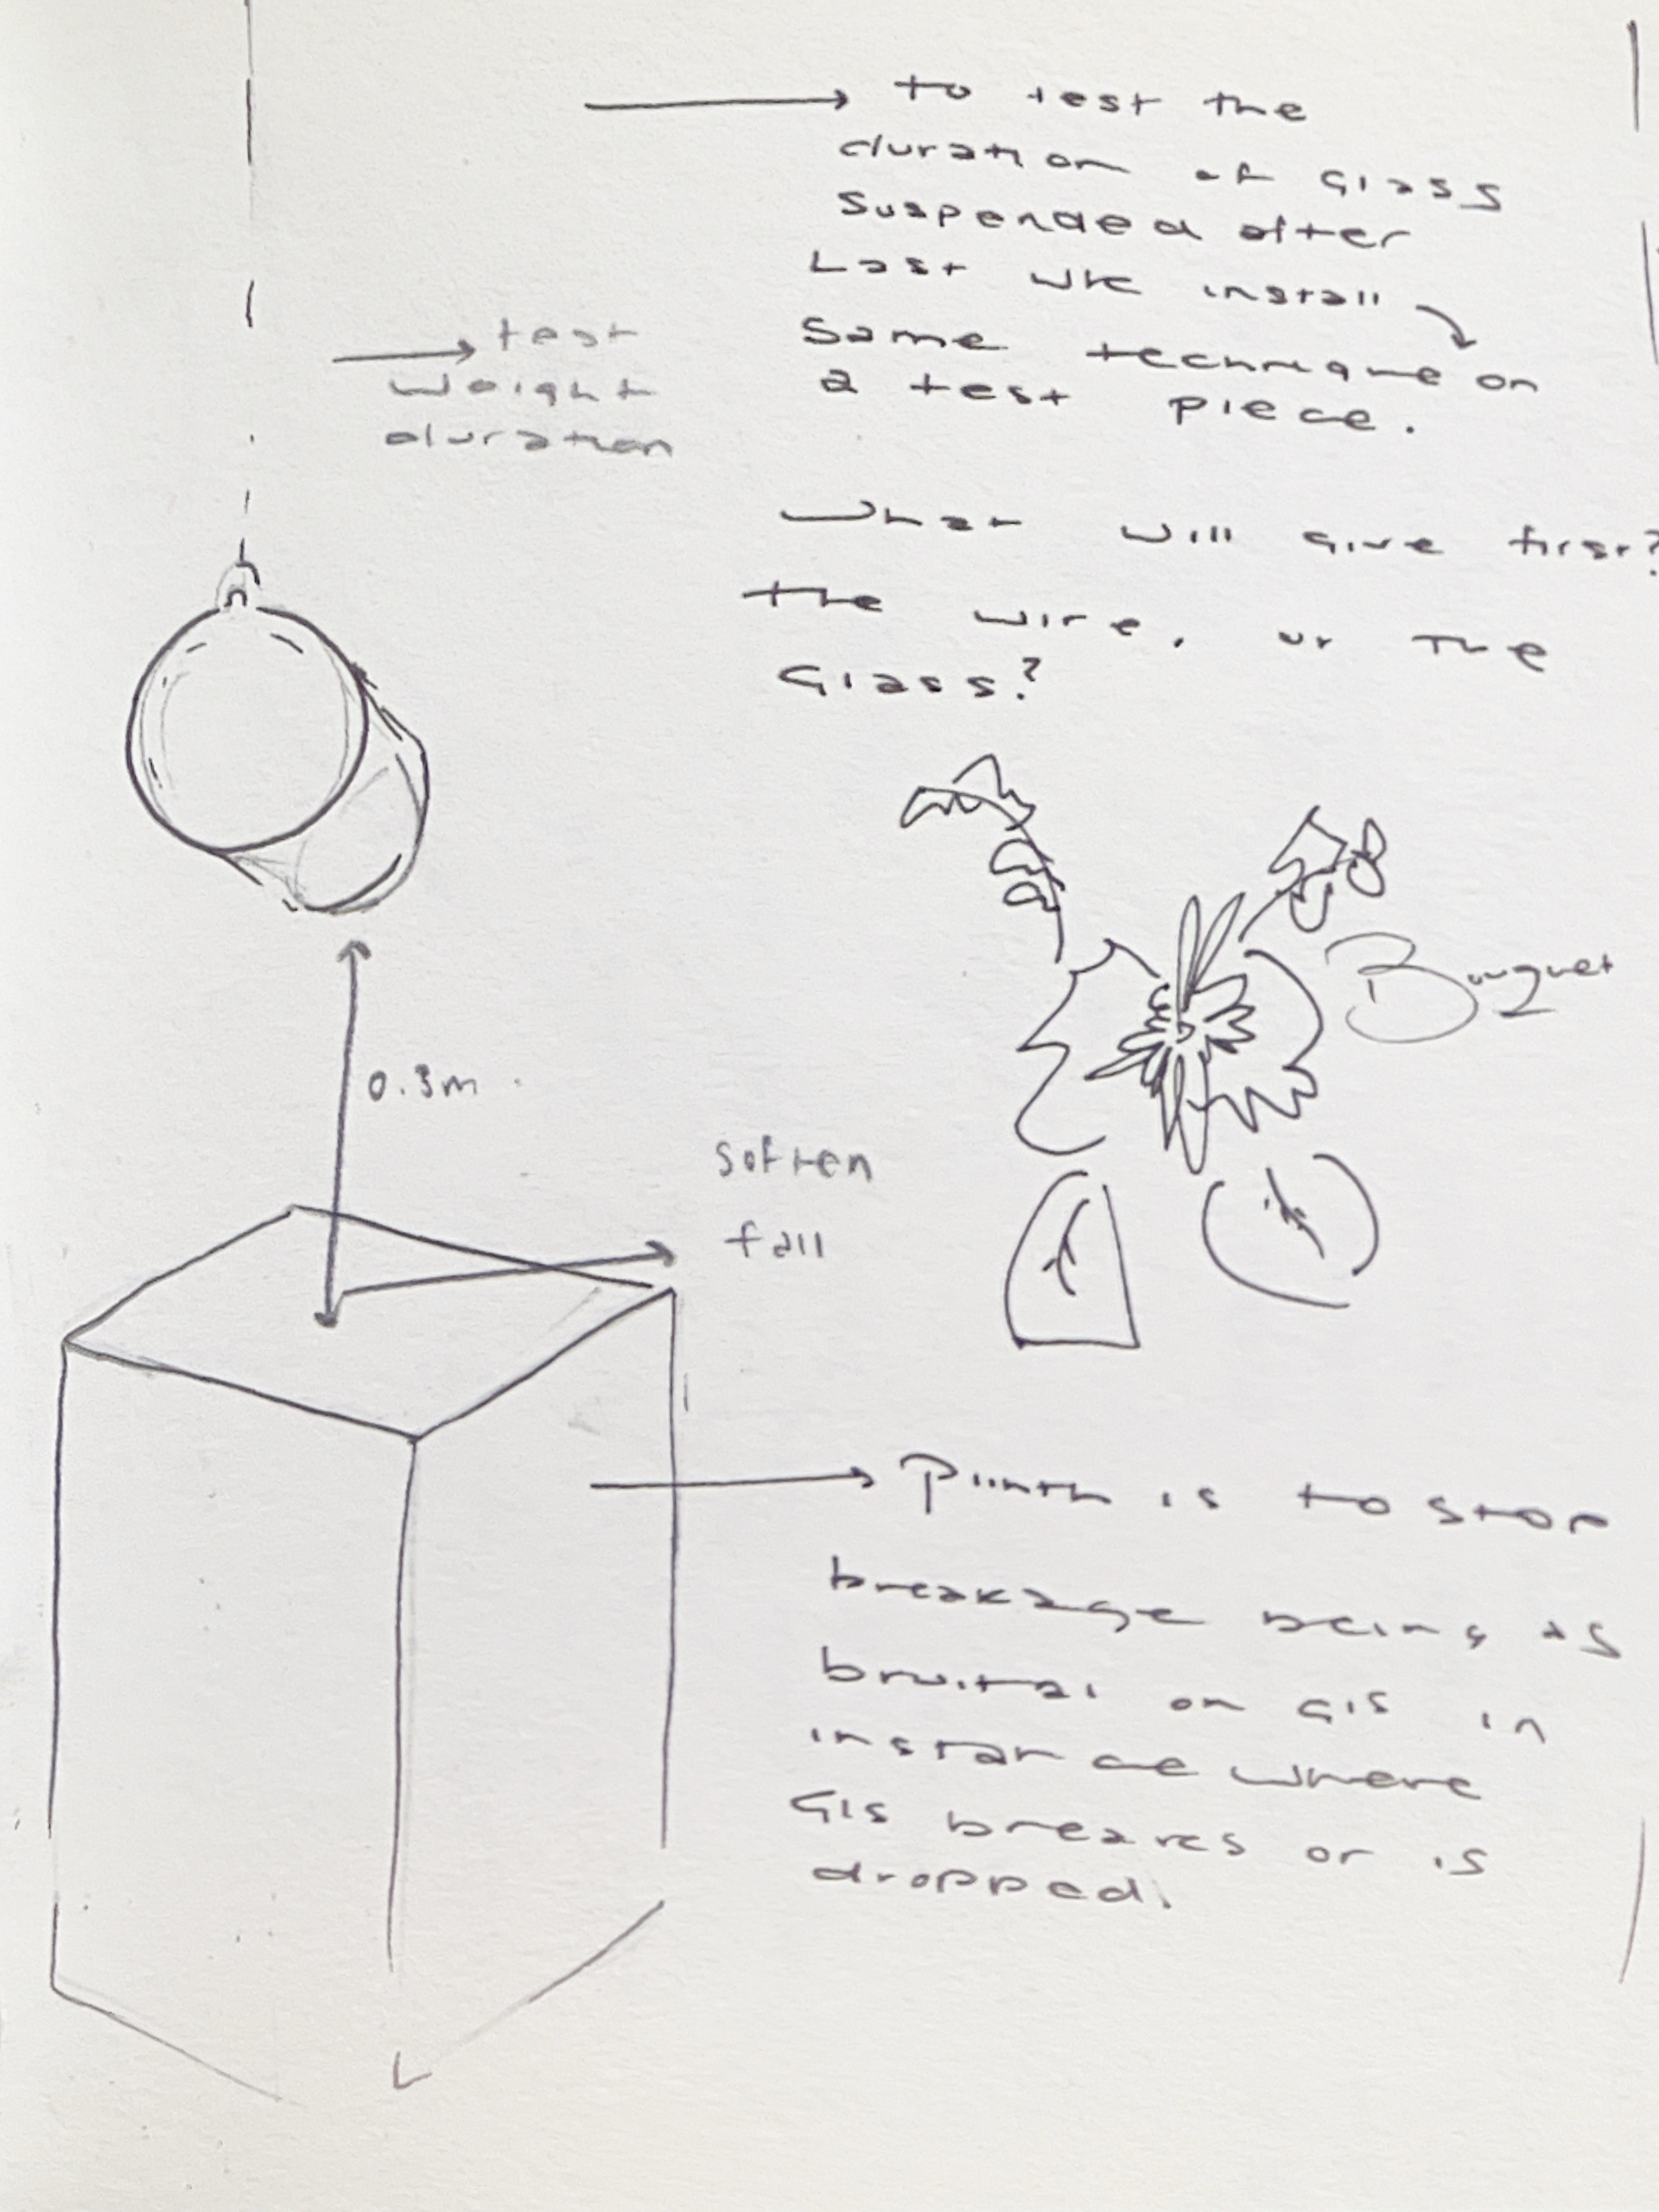 to test the
duration of Glass
Suspended after
Last wk install
Same technique on
a test piece.
test
weight
duration
What will give first?
the wire, or the
Glass?
Bouquet
0.3m
soften
fall
Plinth is to stop
breakage being as
bruital on Gls in
instance where
Gls breaks or is
dropped.